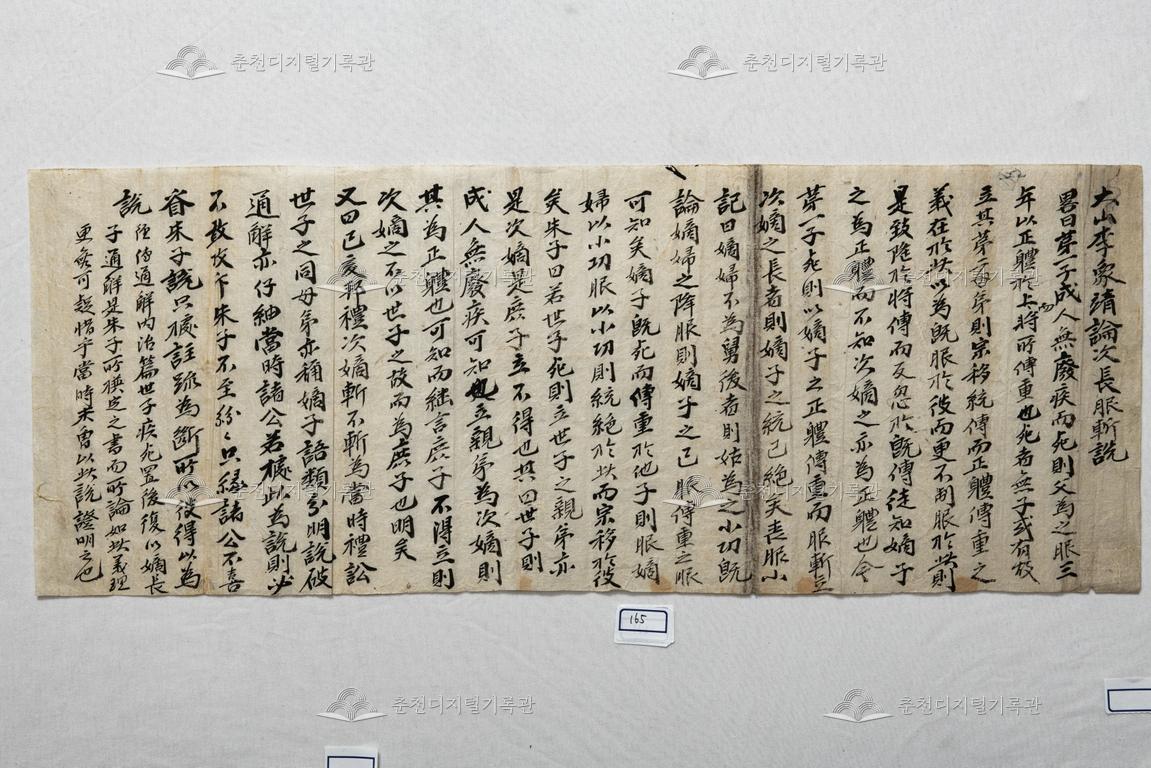 大山李象靖論次長服斬說
畧曰第一子成人無廢疾而死則父為之服三
年以正體於上將所傳重也死者無子或有故
立其第二者第則宗移統傳而正體傳重之
義在於此以為旣服於彼而更不制服於此則
是致隆於將傳而反忽於旣傳徒知嫡子
之為正體而不知次嫡之亦為正體也今
第一子死則以嫡子之正體傳重而服斬立
次嫡之長者則嫡子之統已絶矣喪服小
記曰嫡婦不為舅後者則姑為之小功旣
論嫡婦之降服則嫡子之已服傳重之服
可知矣嫡子旣死而傳重於他子則服嫡
婦以小功服以小功則統絶於此而宗移於彼
矣朱子曰若世子死則立世子之親弟亦
是次嫡是庶子立不得也其曰世子則
成人無廢疾可知也立親弟為次嫡則
其為正體也可知而繼言庶子不得立則
次嫡之不以世子之故而為庶子也明矣
又曰己亥邦禮次嫡斬不斬為當時禮訟
世子之同母弟亦稱嫡子語類分明說破
通解亦仔紬當時諸公若據此為說則必
不敢伐下朱子不至紛々只緣諸公不喜
看朱子說只據註疏為斷所以彼得以為
說
經傳通解內治篇世子疾死置後復以嫡長
子通解是朱子所腰定之書而所論如此義理
更無可疑惜乎當時未曾以此說證明之也
165
춘천디지털기록관
춘천디지털기록관
춘천디지털기록관
춘천디지털기록관
춘천디지털기록관
춘천디지털기록관
춘천디지털기록관
춘천디지털기록관